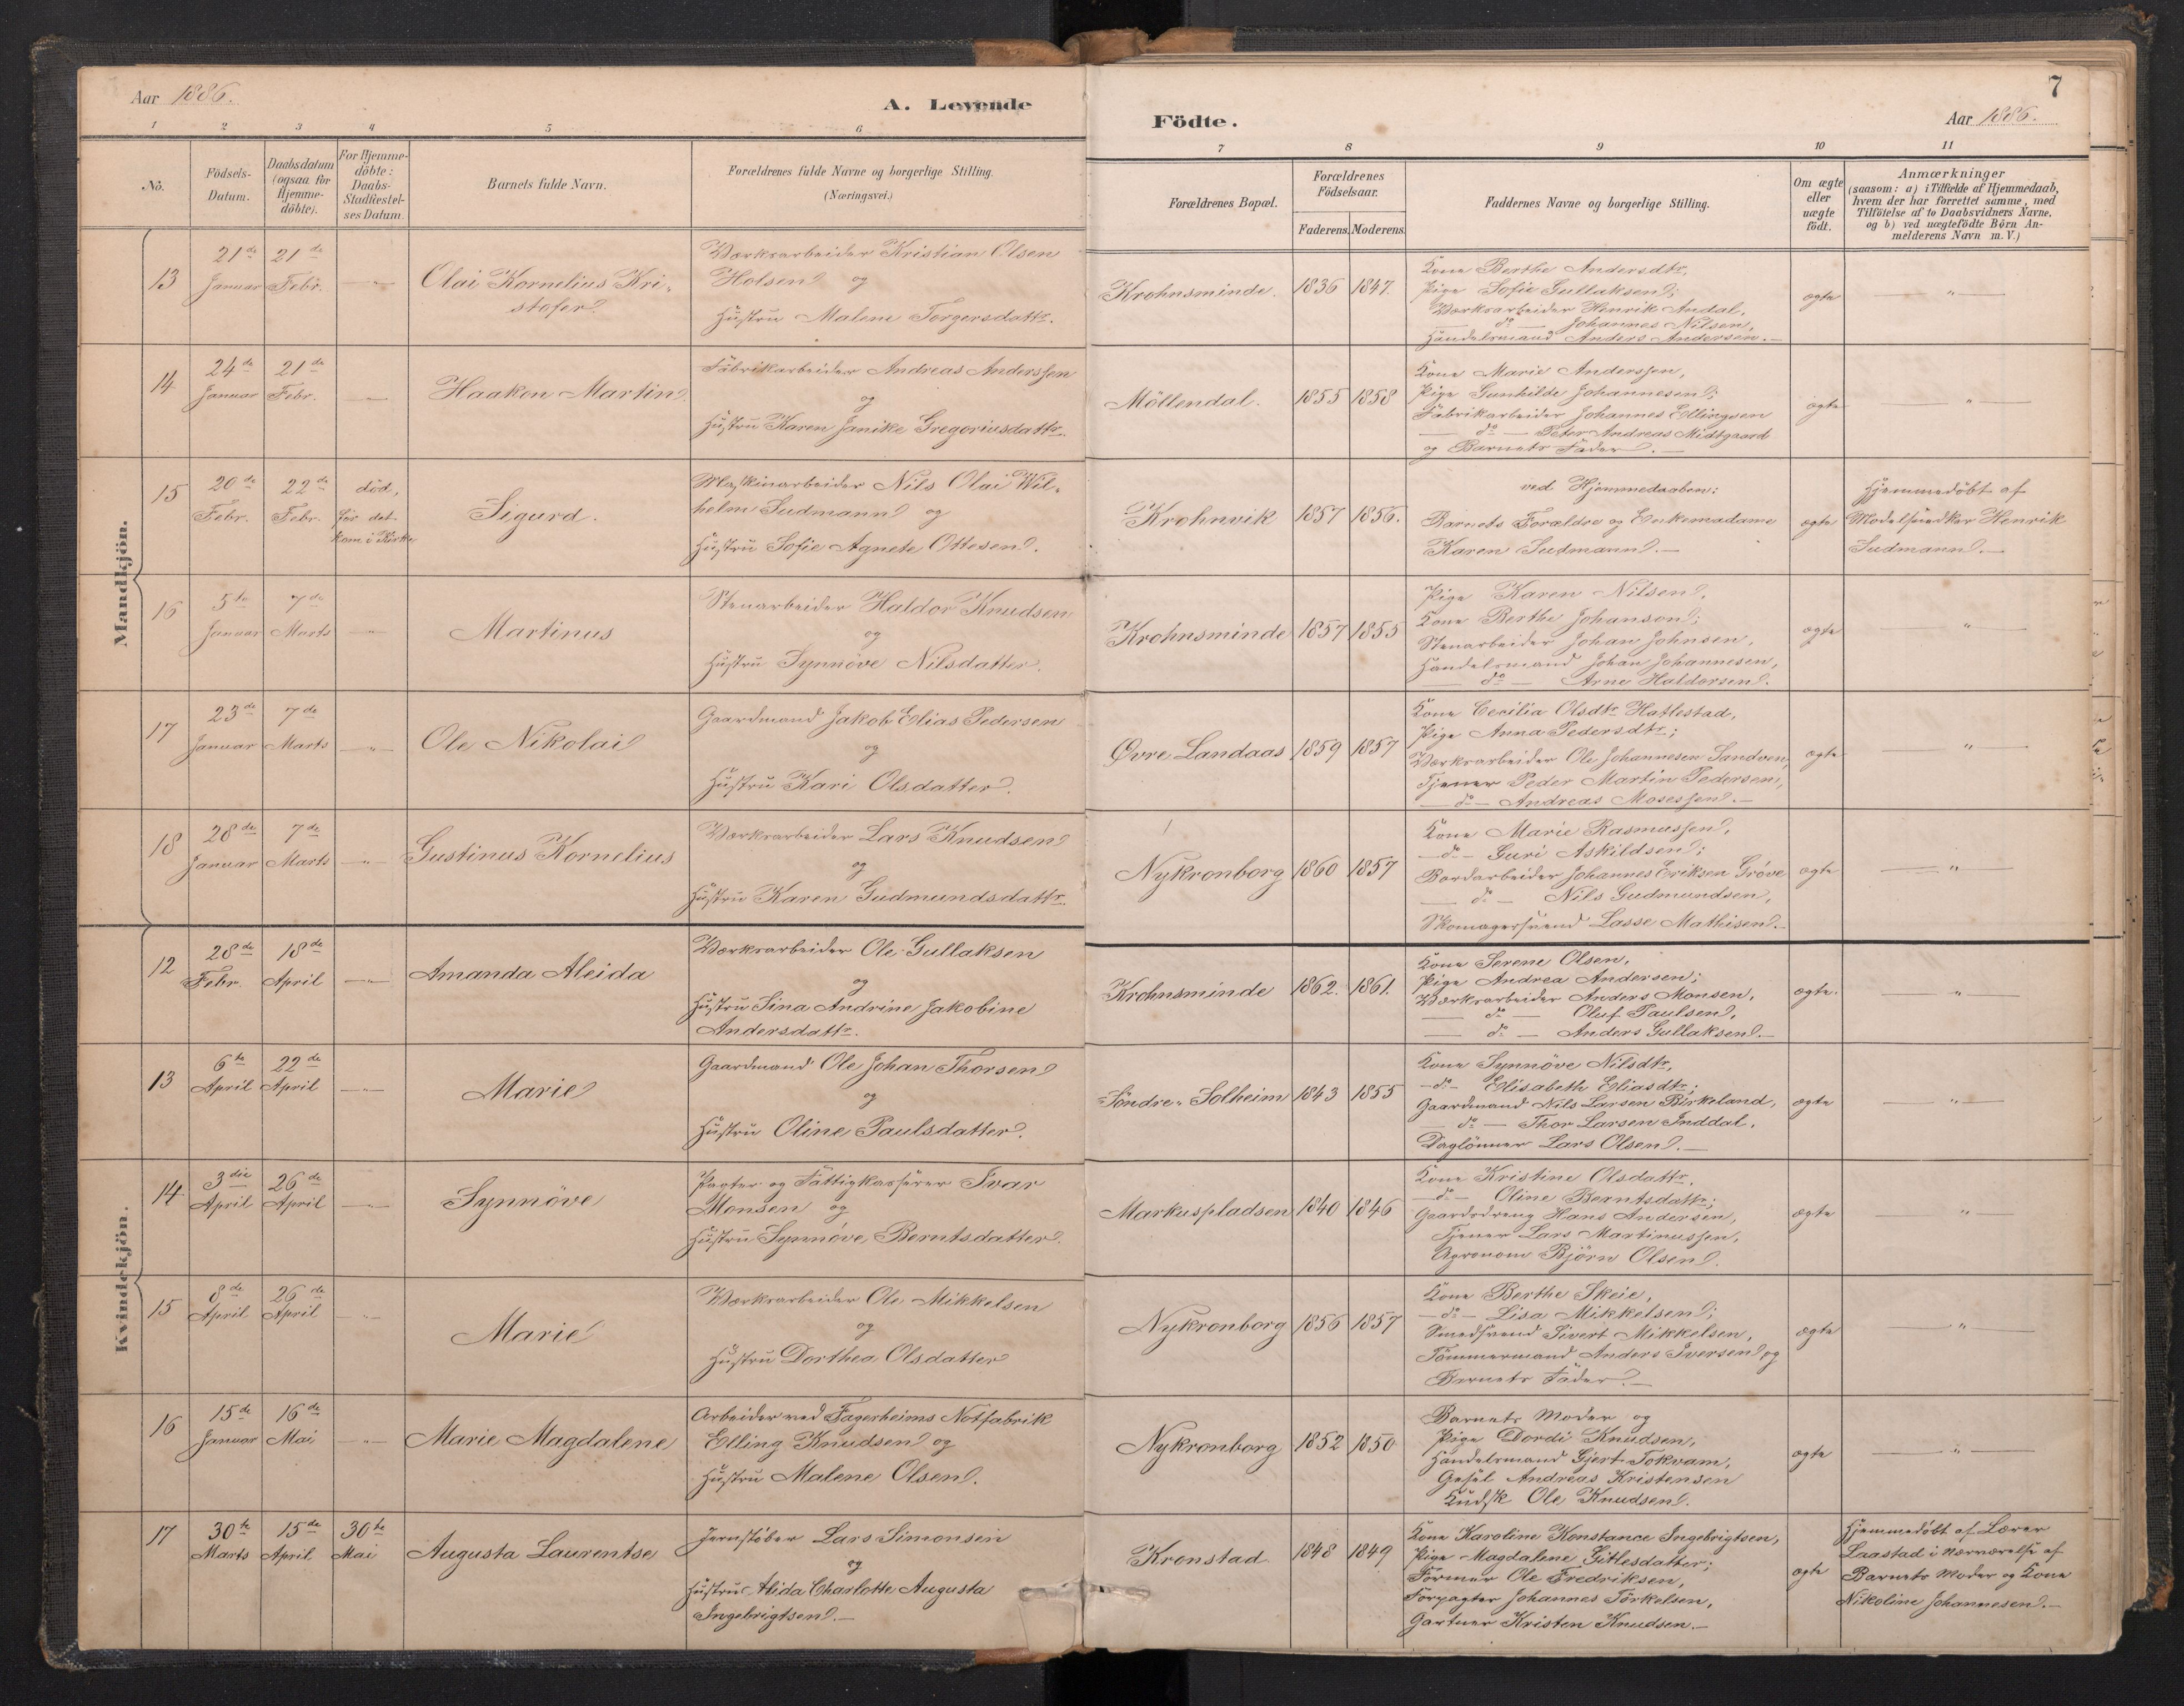 Aar 1886.
A. Levende
Födte.
7
Aar 1886.
1 2 3 4 5 6 7 8 9 10 11
No.
Födsels-
Datum.
Daabsdatum
(ogsaa for
Hjemme-
döbte).
For Hjemme-
döbte:
Daabs-
Stadfæstel-
ses Datum.
Barnets fulde Navn.
Forældrenes fulde Navne og borgerlige Stilling.
(Næringsvei.)
Forældrenes Bopæl.
Forældrenes
Födselsaar.
Faderens. Moderens.
Faddernes Navne og borgerlige Stilling.
Om ægte
eller
uægte
födt.
Anmærkninger
(saasom: a) i Tilfælde af Hjemmedaab,
hvem der har forrettet samme, med
Tilföielse af to Daabsvidners Navne,
og b) ved uægtefödte Börn An-
melderens Navn m. V.)
Mandkjön.
13
21de
Januar
21de
Febr.
— " —
Olai Kornelius Kri-
stofer
Værksarbeider Kristian Olsen
Holsen og
Hustru Malene Torgersdattr.
Krohnsminde.
1836 1847.
Kone Berthe Andersdtr,
Pige Sofie Gullaksen;
Værksarbeider Henrik Andal,
— do — Johannes Nilsen,
Handelsmand Anders Andersen.—
ægte
— " —
14
24de
Januar
21de
Febr.
— " —
Haakon Martin
Fabrikarbeider Andreas Anderssen
og
Hustru Karen Janike Gregoriusdattr.
Möllendal.
1855 1858
Kone Marie Anderssen,
Pige Gunhilde Johannesen;
Fabrikarbeider Johannes Ellingsen
— do — Peter Andreas Midtgaard
og Barnets Fader.—
ægte
— " —
15
20de
Febr.
22de
Febr.
död,
för det
kom i Kirke
Sigurd.
Maskinarbeider Nils Olai Wil-
helm Sudmann og
Hustru Sofie Agnete Ottesen.
Krohnvik
1857 1856.
ved Hjemmedaaben:
Barnets Forældre og Enkemadame
Karen Sudmann.—
ægte
Hjemmedöbt af
Modelsnedker Henrik
Sudmann.—
16
5te
Januar
7de
Marts
— " —
Martinus
Stenarbeider Haldor Knudsen
og
Hustru Synnöve Nilsdatter.
Krohnsminde
1857 1855
Pige Karen Nilsen,
Kone Berthe Johanson;
Stenarbeider Johan Johnsen,
Handelsmand Johan Johannesen,
— do — Arne Haldorsen.
ægte
— " —
17
23de
Januar
7de
Marts
— " —
Ole Nikolai
Gaardmand Jakob Elias Pedersen
og
Hustru Kari Olsdatter.
Øvre Landaas
1859 1857
Kone Cecilia Olsdtr Hatlestad,
Pige Anna Pedersdtr;
Værksarbeider Ole Johannesen Sandven,
Tjener Peder Martin Pedersen,
— do — Andreas Mosessen.—
ægte
— " —
18
28de
Januar
7de
Marts
— " —
Gustinus Kornelius
Værksarbeider Lars Knudsen
og
Hustru Karen Gudmundsdattr.
Nykronborg
1860 1857
Kone Marie Rasmussen,
— do — Guri Askildsen;
Bordarbeider Johannes Eriksen Gröve
— do — Nils Gudmundsen,
Skomagersvend Lasse Mathisen.—
ægte
— " —
Kvindekjön.
12
28de
Febr.
18de
April
— " —
Amanda Aleida
Værksarbeider Ole Gullaksen
og
Hustru Sina Andrine Jakobine
Andersdattr.
Krohnsminde
1862. 1861.
Kone Serene Olsen,
Pige Andrea Andersen;
Værksarbeider Anders Monsen,
— do — Oluf Paulsen,
— do — Anders Gullaksen.—
ægte.
— " —
13
6te
April
22de
April
— " —
Marie
Gaardmand Ole Johan Thorsen
og
Hustru Oline Paulsdatter.
Söndre-Solheim
1843 1855
Kone Synnöve Nilsdtr,
— do — Elisabeth Eliasdtr;
Gaardmand Nils Larsen Birkeland,
— do — Thor Larsen Inddal,
Daglönner Lars Olsen.—
ægte
— " —
14
3die
April
26de
April
— " —
Synnöve
Pagter og Fattigkasserer Ivar
Monsen og
Hustru Synnöve Berntsdatter.
Markuspladsen
1840 1846
Kone Kristine Olsdattr,
— do — Oline Berntsdattr;
Gaardsdreng Hans Andersen,
Tjener Lars Martinussen,
Agronom Björn Olsen.
ægte
— " —
15
8de
April
26de
April
— " —
Marie
Værksarbeider Ole Mikkelsen
og
Hustru Dorthea Olsdatter
Nykronborg
1856 1857
Kone Berthe Skeie,
— do — Lisa Mikkelsen;
Smedsvend Sivert Mikkelsen,
Tömmermand Anders Iversen og
Barnets Fader.—
ægte
— " —
16
15de
Januar
16de
Mai
— " —
Marie Magdalene
Arbeider ved Fagerheims Notfabrik
Elling Knudsen og
Hustru Malene Olsen.
Nykronborg
1852 1850
Barnets Moder og
Pige Dordi Knudsen,
Handelsmand Gjert Tokvam,
Gesel Andreas Kristensen
Kudsk Ole Knudsen.
ægte
— " —
17
30te
Marts
15de
April
30te
Mai
Augusta Laurentse
Jernstöber Lars Simonsen
og
Hustru Alida Charlotte Augusta
Ingebrigtsen.—
Kronstad
1848 1849
Kone Karoline Konstance Ingebrigtsen,
Pige Magdalene Gitlesdatter;
Former Ole Fredriksen,
Forpagter Johannes Törkelsen,
Gartner Kristen Knudsen.—
ægte
Hjemmedöbt af Lærer
Laastad i Nærværelse af
Barnets Moder og Kone
Nikoline Johannesen.—